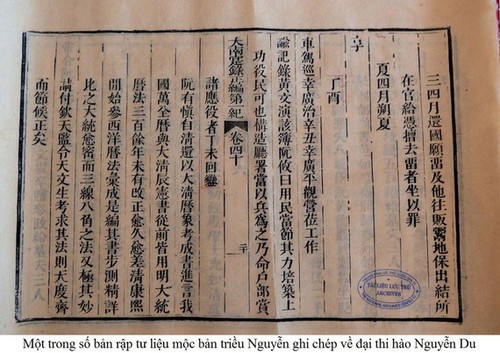 三四月還國願畱及他往販鬻地保出結所
在官給憑擅去畱者坐以罪
夏四月朔夏
享
丁酉
車駕巡幸廣治辛丑幸廣平觀營莅工作
記錄黃文演該簿阮攸曰用民當節其力培築土
功役民可也構造廳署當以兵爲之乃命戶部賞
大南寔錄正編第一紀 卷四十 二十
諸應役者丁未回鑾
阮有慎自清還以大清曆象考成書進言我
國萬全曆與大清辰憲書從前皆用明大統
曆法三百餘年未有改正愈久愈差清康熙
間始參西洋曆法彙成是編其書步測精詳
比之大統愈密而三線八角之法又極其妙
請付欽天監令天文生考求其法則天度齊
而節候正矣
TÀI LIỆU LƯU TRỮ
ARCHIVES
Một trong số bản rập tư liệu mộc bản triều Nguyễn ghi chép về đại thi hào Nguyễn Du